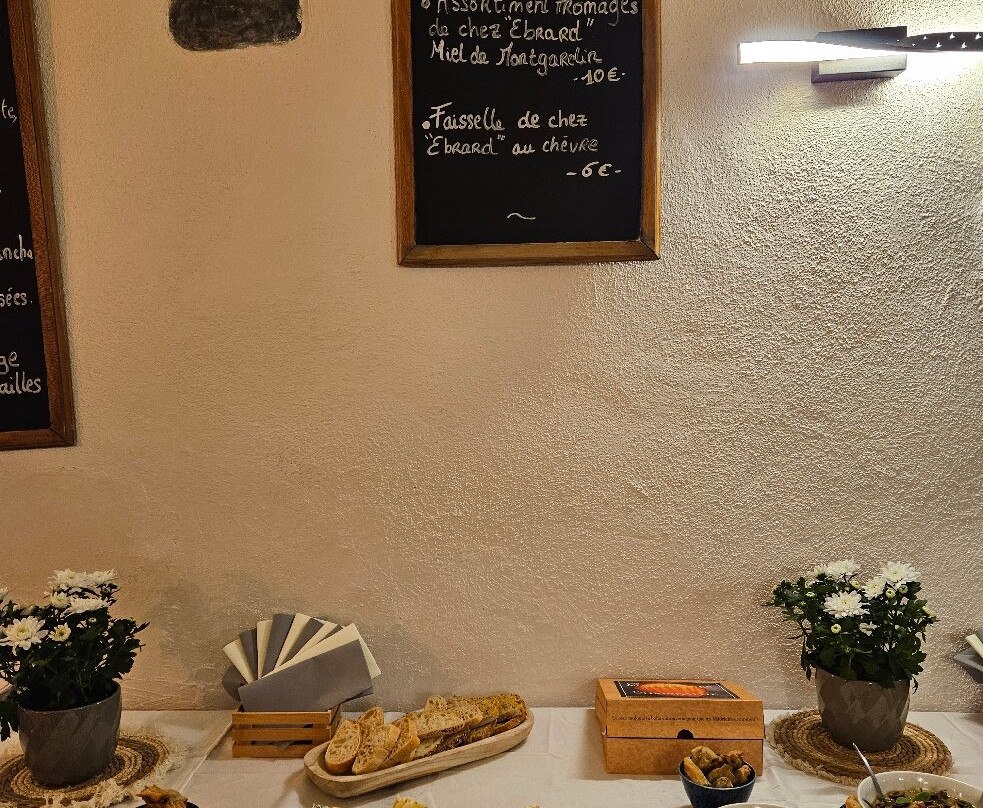 te,
ncha
sées.
ge
ailles
• Assortiment fromages
de chez "Ebrard"
Miel de Montgardin
-10€-
• Faisselle de chez
"Ebrard" au chèvre
-6€-
~